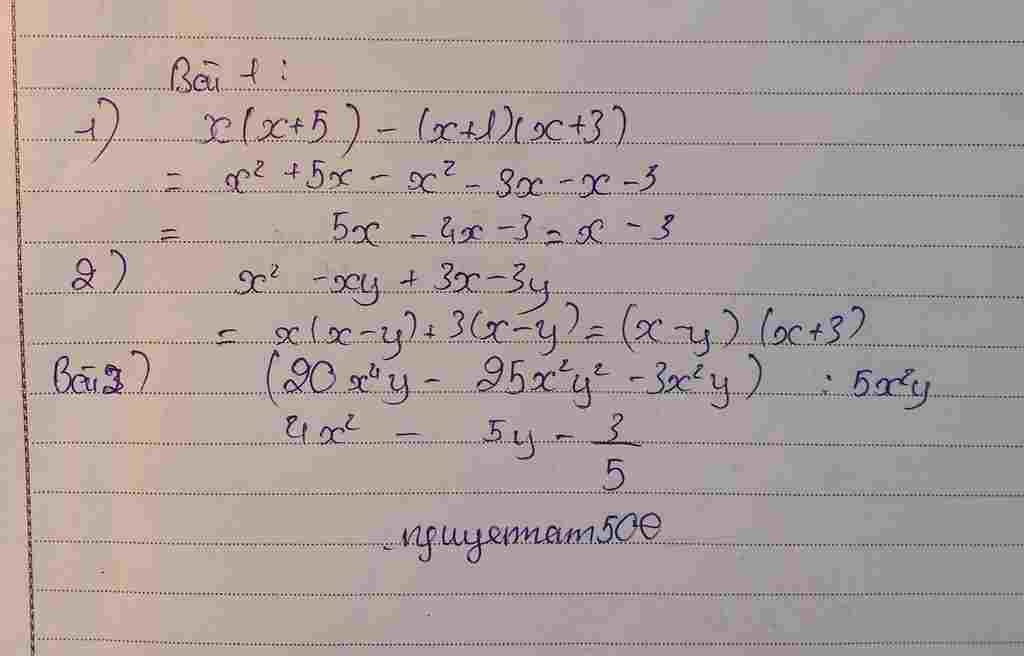 Bài 1:
1) x(x+5) - (x+1)(x+3)
= x² + 5x - x² - 3x - x - 3
= 5x - 4x - 3 = x - 3
2) x² - xy + 3x - 3y
= x(x-y) + 3(x-y) = (x-y)(x+3)
Bài 2) (20x⁴y - 25x²y² - 3x²y) : 5x²y
4x² - 5y - 3/5
nguyetnam500